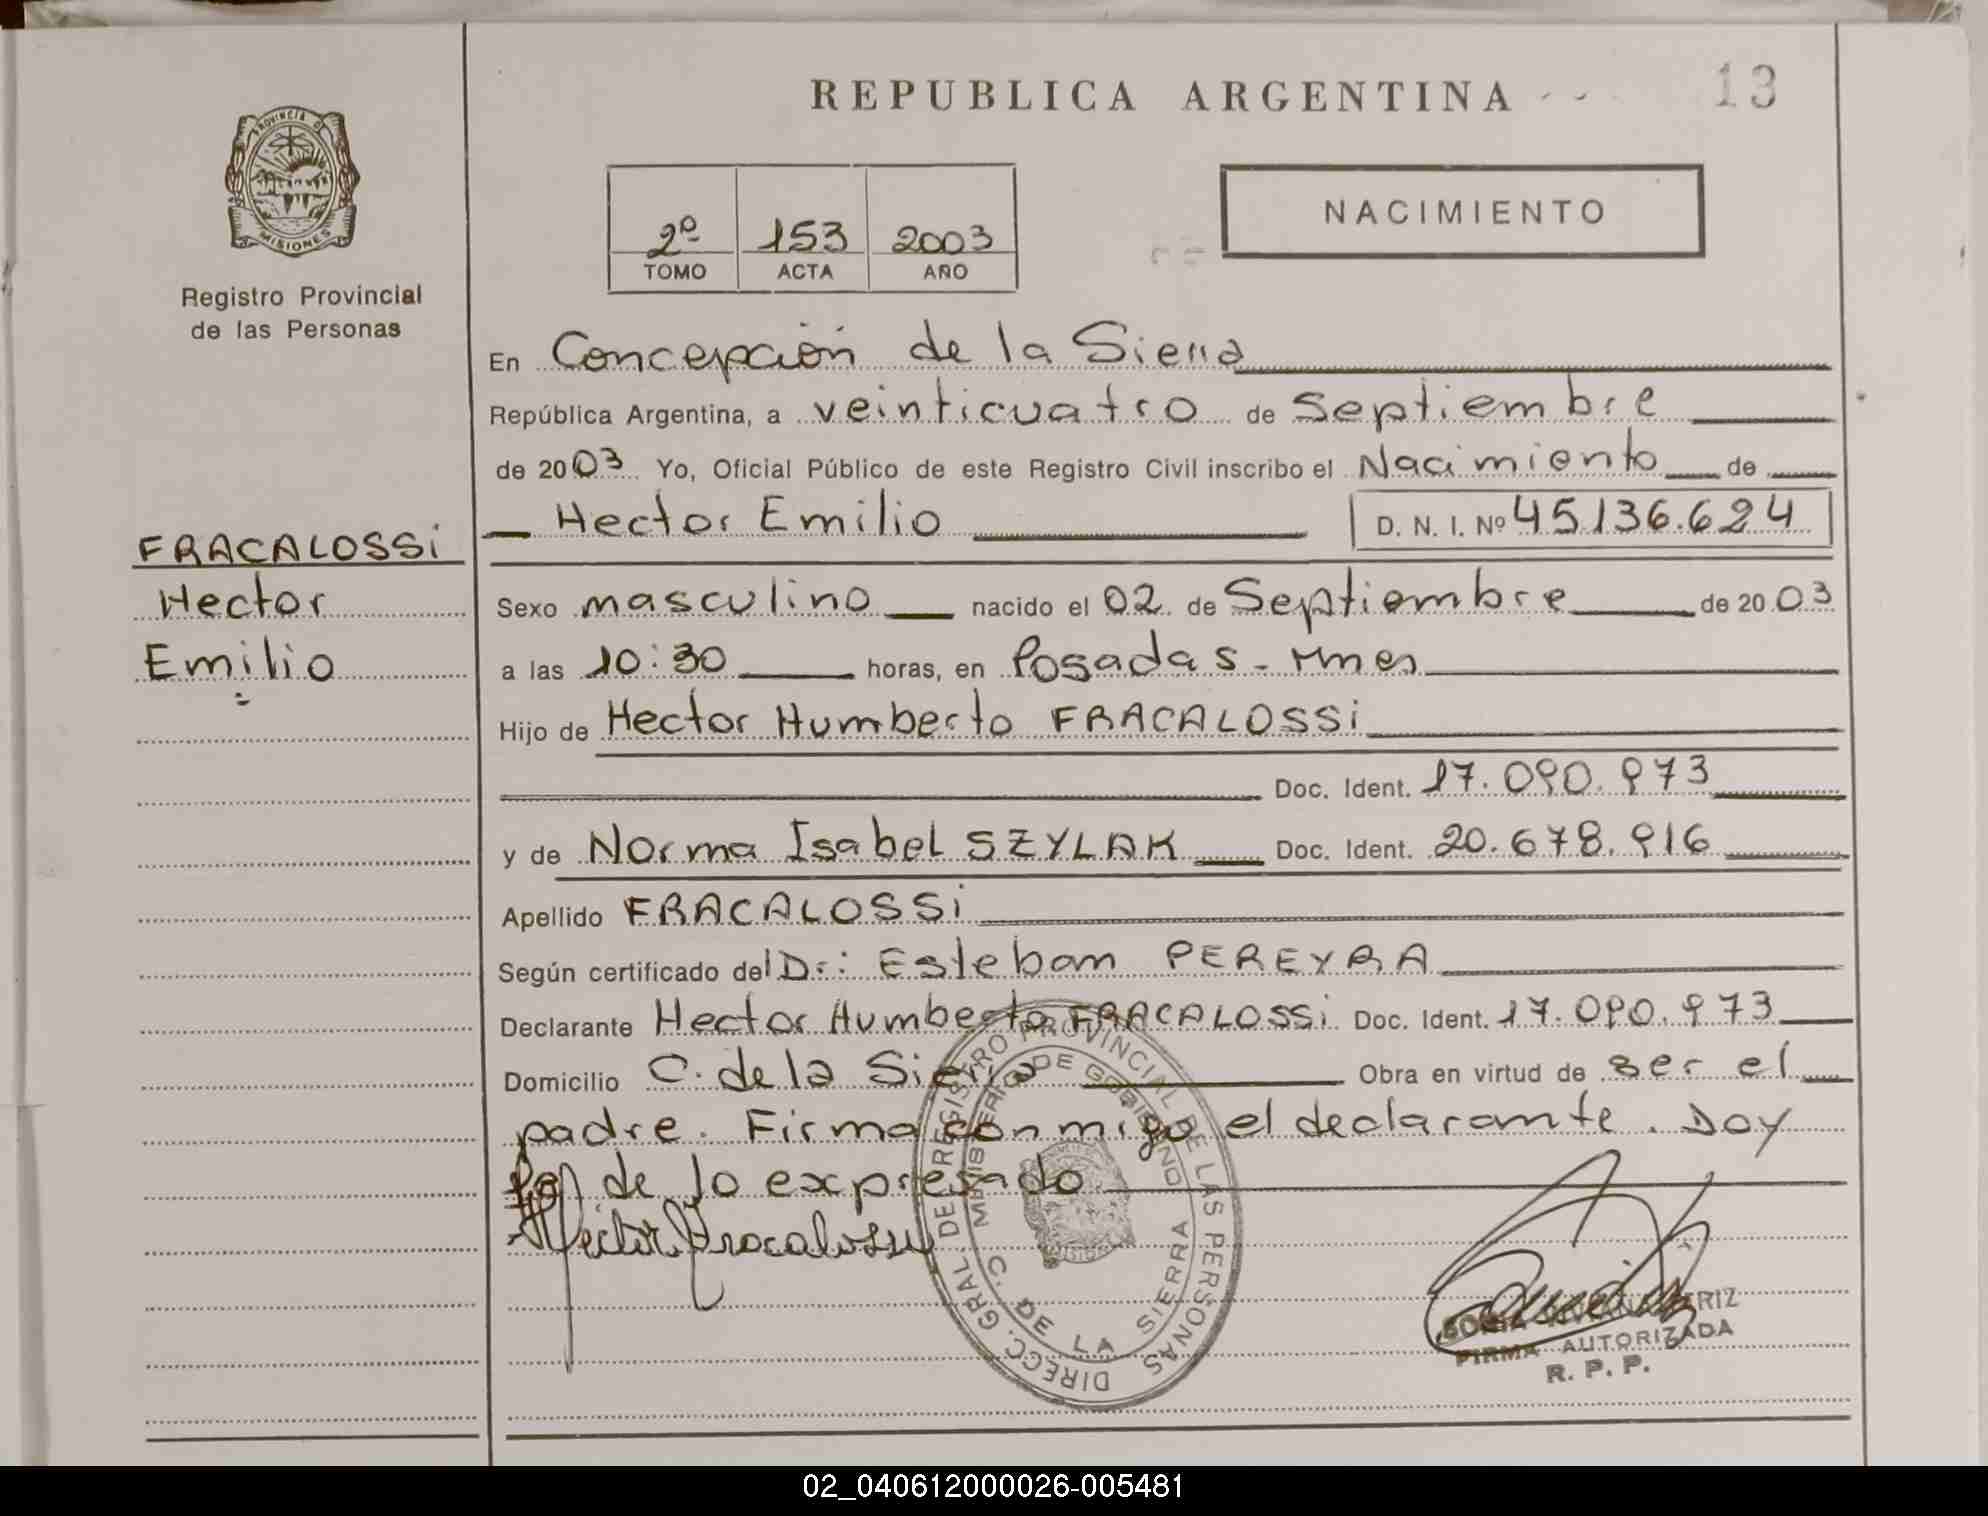 REPUBLICA ARGENTINA
13
PROVINCIA D
MISIONES
Registro Provincial
de las Personas
2º 153 2003
TOMO ACTA AÑO
NACIMIENTO
En Concepción de la Sierra
República Argentina, a veinticuatro de Septiembre
de 2003 Yo, Oficial Público de este Registro Civil inscribo el Nacimiento de
Hector Emilio D. N. I. Nº 45.136.624
FRACALOSSi
Hector
Emilio
Sexo masculino nacido el 02 de Septiembre de 2003
a las 10:30 horas, en Posadas - Mnes
Hijo de Hector Humberto FRACALOSSi
Doc. Ident. 17.090.973
y de Norma Isabel SZYLAK Doc. Ident. 20.678.916
Apellido FRACALOSSi
Según certificado del Dr: Esteban PEREYRA
Declarante Hector Humberto FRACALOSSi Doc. Ident. 17.090.973
Domicilio C. de la Sierra Obra en virtud de ser el
padre. Firma conmigo el declarante. Doy
de lo expresado
Hector Fracalossi
DIRECC. GRAL. DE REGISTRO PROVINCIAL DE LAS PERSONAS
MINISTERIO DE GOBIERNO
C. DE LA SIERRA
FIRMA AUTORIZADA
R. P. P.
02_040612000026-005481